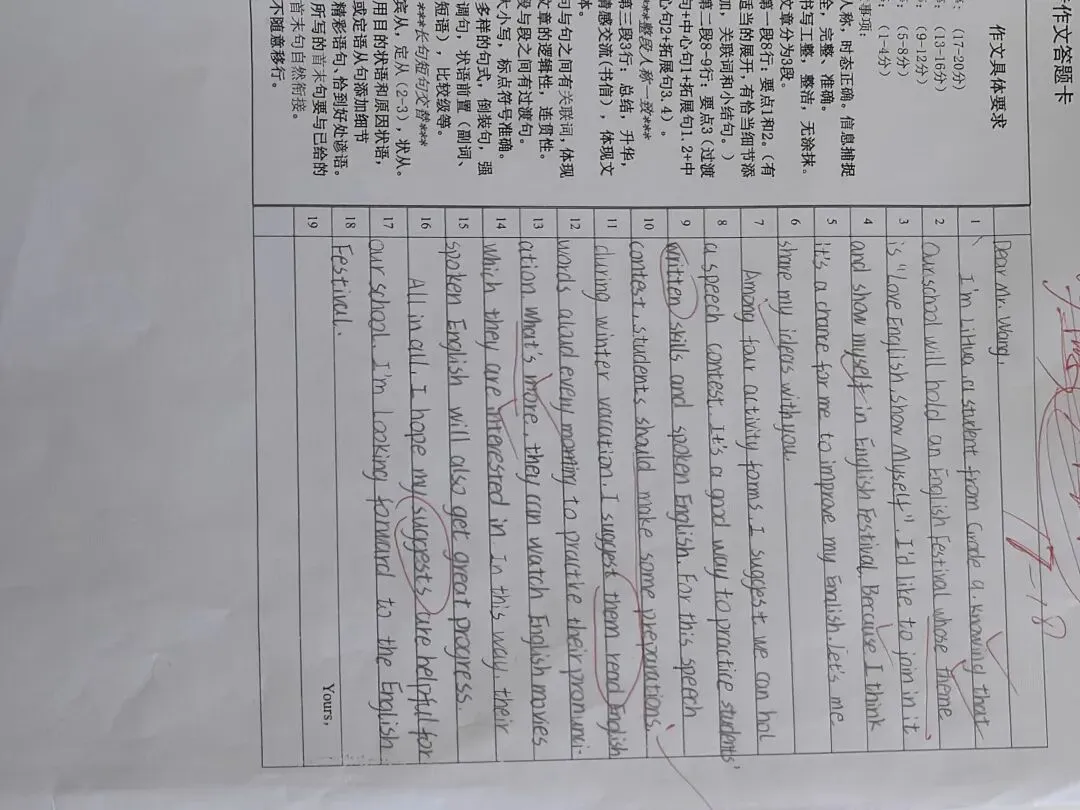 作文答题卡
作文具体要求
(17-20分)
(13-16分)
(9-12分)
(5-8分)
(1-4分)
事项:
人称,时态正确。信息捕捉
全,完整、准确。
书写工整,整洁,无涂抹。
文章分为3段。
第一段8行:要点1和2。(有
适当的展开,有恰当细节添
加,关联词和小结句。)
第二段8-9行:要点3(过渡
句+中心句1+拓展句1.2+中
心句2+拓展句3.4)。
***整段人称一致****
第三段3行:总结,升华,
情感交流(书信),体现文
体。
句与句之间有关联词,体现
文章的逻辑性,连贯性。
段与段之间有过渡句。
大小写,标点符号准确。
多样的句式,倒装句,强
调句,状语前置(副词、
短语),比较级等。
***长句短句交替***
宾从,定从(2-3),状从。
用目的状语和原因状语,
或定语从句添加细节
精彩语句、恰到好处谚语。
所写的首末句要与已给的
首末句自然衔接。
不随意移行。
Dear Mr. Wang,
1 I'm LiHua, a student from Grade 9, knowing that
2 Our school will hold an English Festival whose theme
3 is "Love English, show Myself". I'd like to join in it
4 and show myself in English Festival. Because I think
5 it's a chance for me to improve my English. Let's me
6 share my ideas with you.
7 Among four activity forms, I suggest we can hol
8 a speech contest. It's a good way to practice students'
9 written skills and spoken English. For this speech
10 contest, students should make some preparations.
11 during winter vacation. I suggest them read English
12 words aloud every morning to practive their pronunci-
13 ation. What's more, they can watch English movies
14 which they are interested in. In this way, their
15 spoken English will also get great progress.
16 All in all, I hope my suggests are helpful for
17 our school. I'm looking forward to the English
18 Festival.
19
Yours,